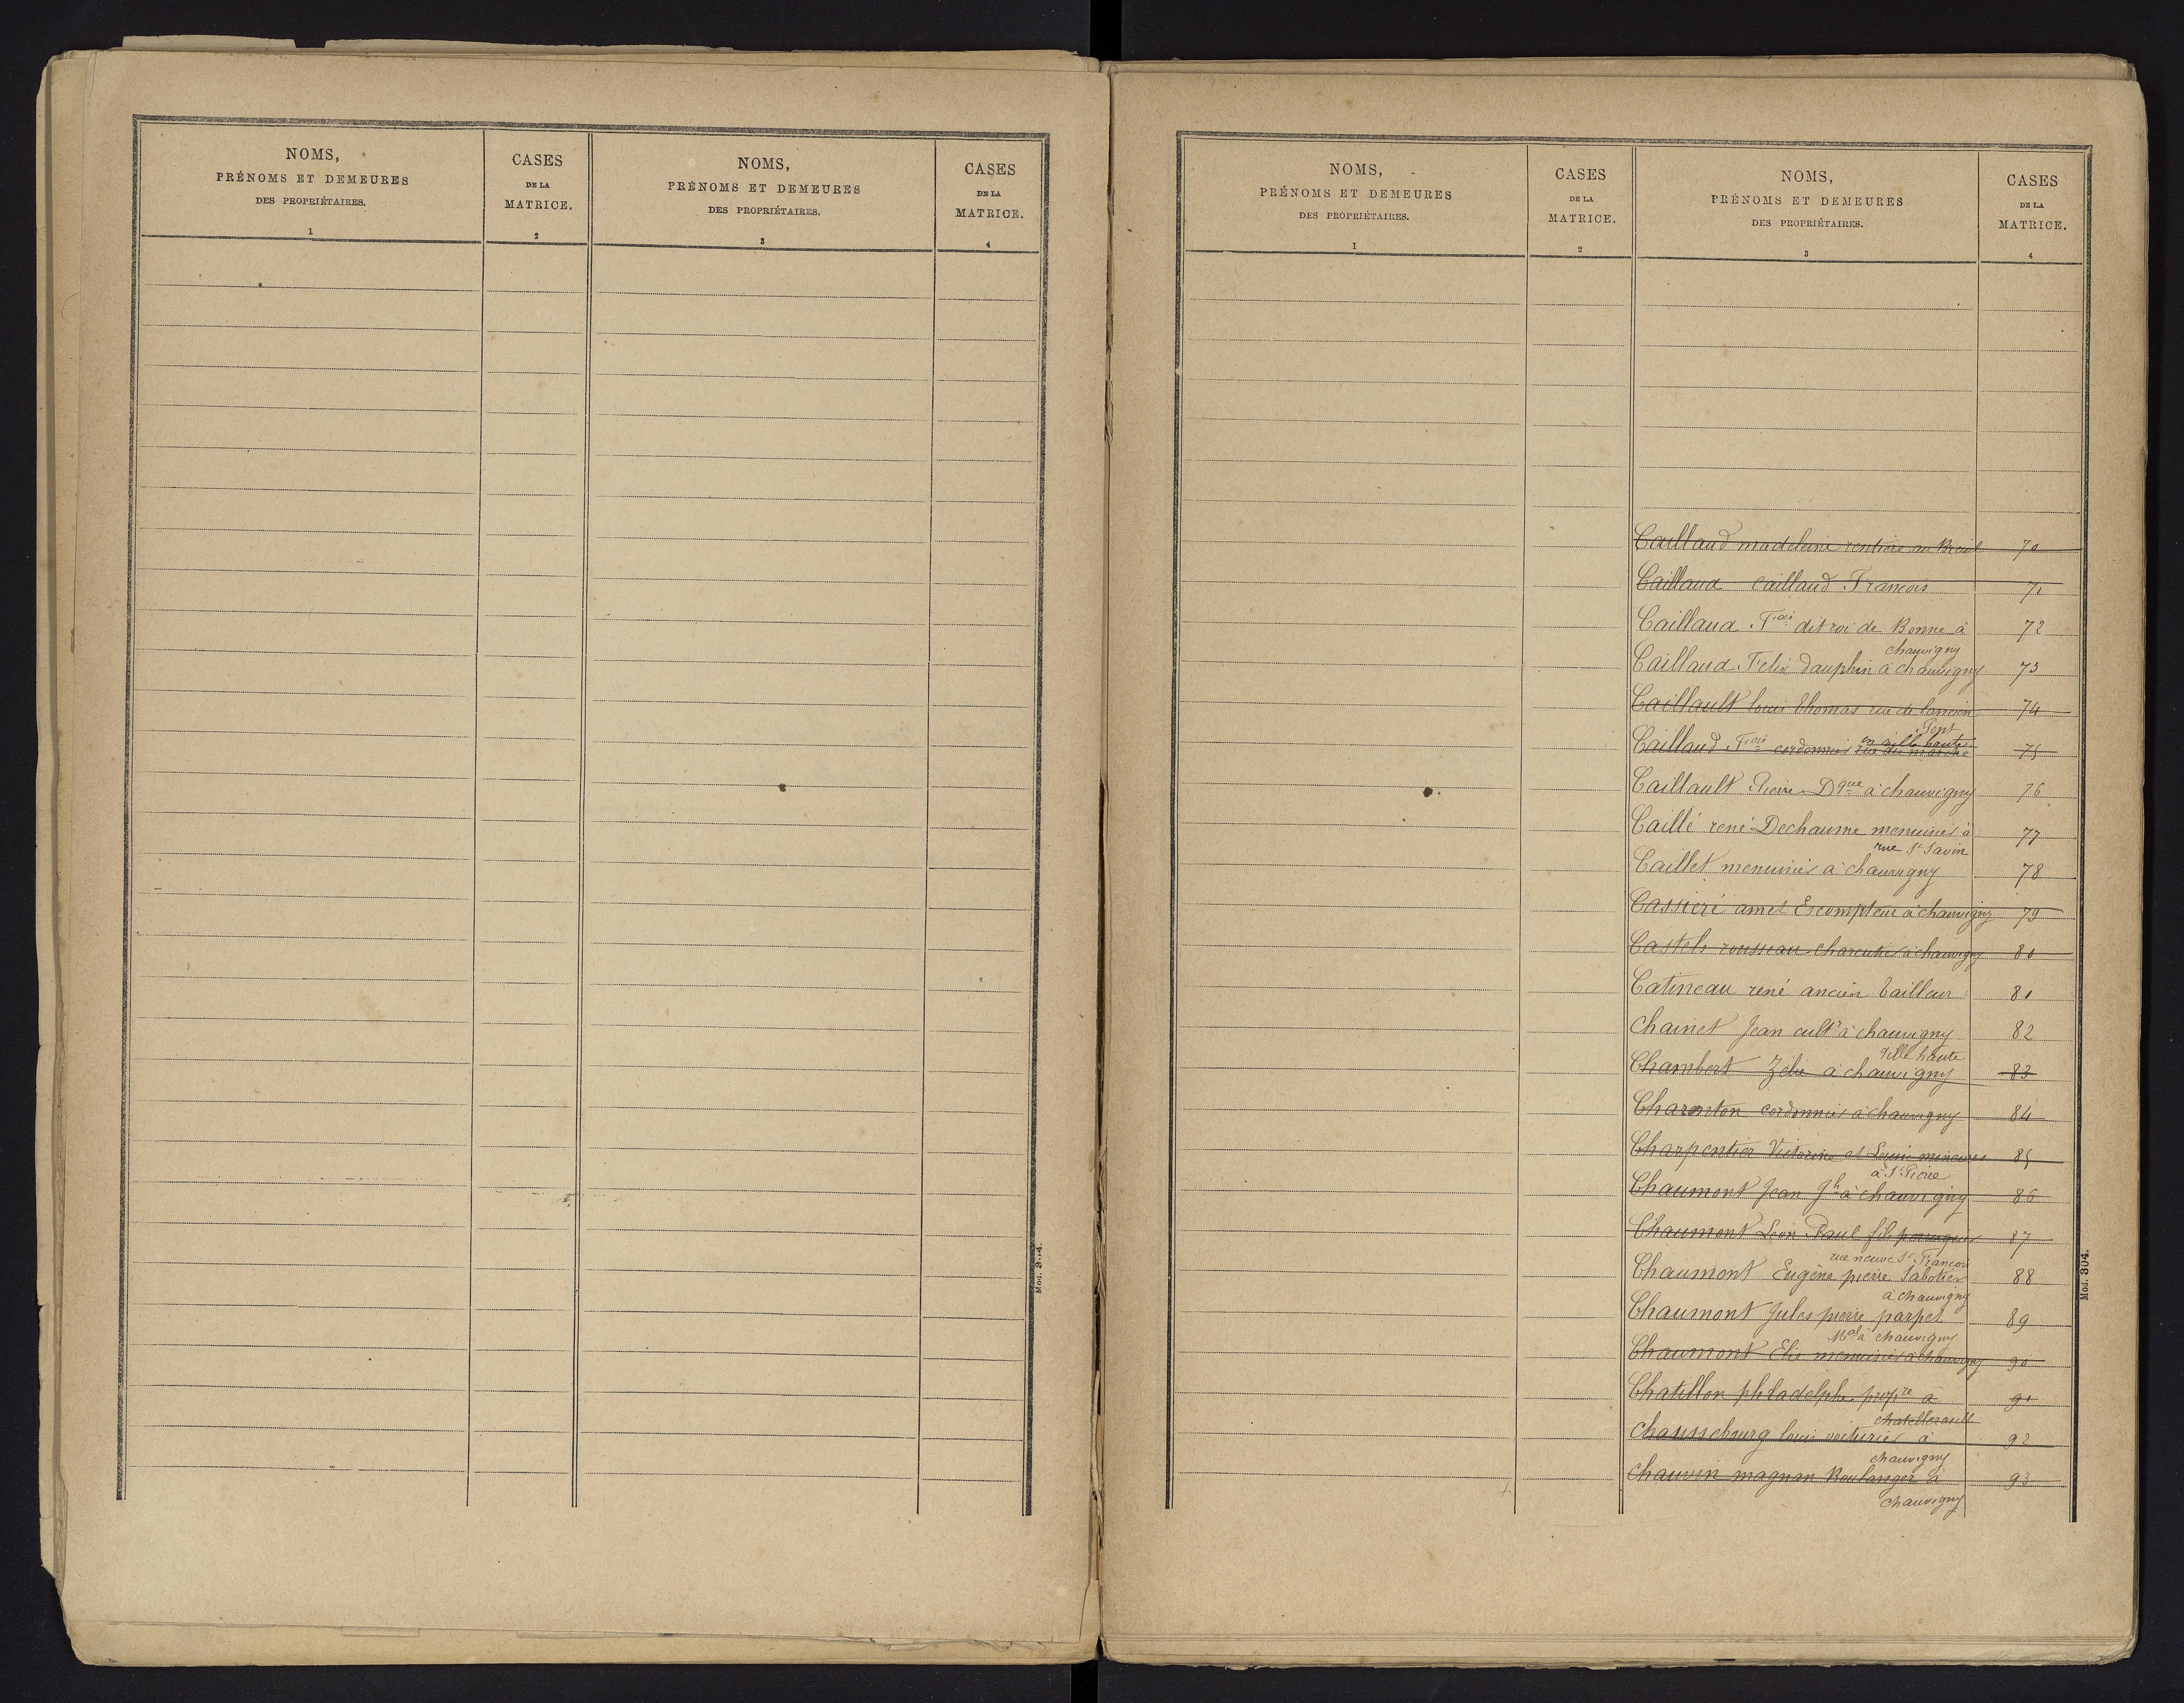 NOMS,
PRÉNOMS ET DEMEURES
DES PROPRIÉTAIRES.
1
CASES
DE LA
MATRICE.
2
NOMS,
PRÉNOMS ET DEMEURES
DES PROPRIÉTAIRES.
3
CASES
DE LA
MATRICE.
4
Mod. 304.
NOMS,
PRÉNOMS ET DEMEURES
DES PROPRIÉTAIRES.
1
CASES
DE LA
MATRICE.
2
NOMS,
PRÉNOMS ET DEMEURES
DES PROPRIÉTAIRES.
3
CASES
DE LA
MATRICE.
4
Caillaud madeleine rentiere au Breuil 70
Caillaud caillaud François 71
Caillaud Fois dit roi de Bonne à 72
chauvigny
Caillaud Felix Dauphin à chauvigny 73
Caillault louis thomas rue de lancien 74
Pont
en ville haute
Caillaud Fois cordonnier rue du marché 75
Caillault Pierre Dque à chauvigny 76
Caillé rené Dechaume menuisier à 77
rue St Savin
Caillet menuisier à chauvigny 78
Cassieré amet Escompteur à chauvigny 79
Castels rousseau charcutier à chauvigny 80
Catineau rené ancien tailleur 81
Chainet Jean cultr à chauvigny 82
ville haute
Chambert Zélie à chauvigny 83
Charenton cordonnier à chauvigny 84
Charpentier Victorine et Louis mineures 85
à St Pierre
Chaumont Jean Jh à chauvigny 86
Chaumont Léon Paul fils perruquier 87
rue neuve St François
Chaumont Eugène pierre Sabotier 88
à chauvigny
Chaumont Jules pierre parpet 89
Mal à chauvigny
Chaumont Elie menuisier à chauvigny 90
Chatillon philadelphe propre à 91
chatellerault
Chaussebourg louis voiturier à 92
chauvigny
Chauvin magnan Boulanger à 93
chauvigny
Mod. 304.